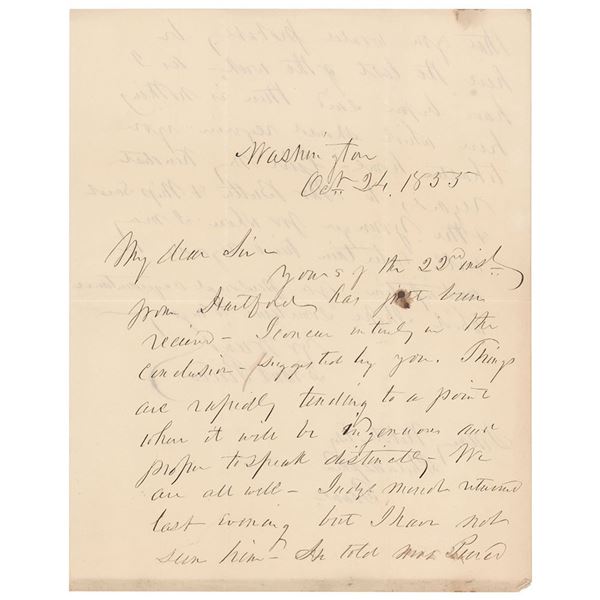 Washington
Oct. 24, 1855
My dear Sir
Yours of the 22nd inst
from Hartford has just been
received - I concur entirely in the
conclusion - suggested by you. Things
are rapidly tending to a point
when it will be and
proper to speak distinctly - We
are all well - Judge returned
last evening but I have not
seen him - told Mrs. Pierce